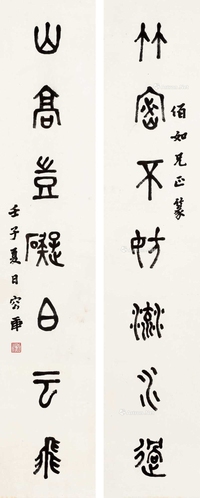 佰如兄正篆
竹密不妨㵗水過
山高豈礙白云飛
壬子夏日容庚